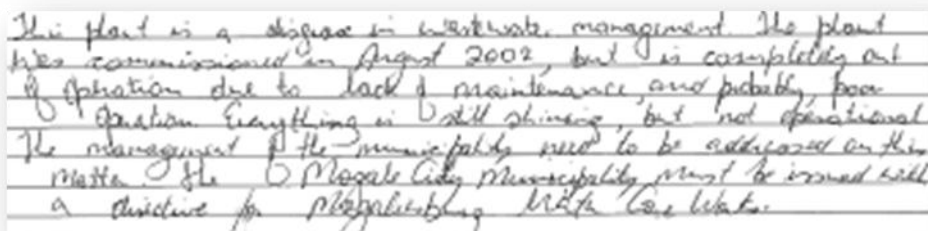 This plant is a disgrace in wastewater management. The plant
was commissioned in August 2002, but is completely out
of operation due to lack of maintenance, and probably, poor
operation. Everything is still shining, but not operational
The management of the municipality need to be addressed on this
matter. The Mogale City Municipality must be issued with
a directive for Magaliesburg Water Care Works.